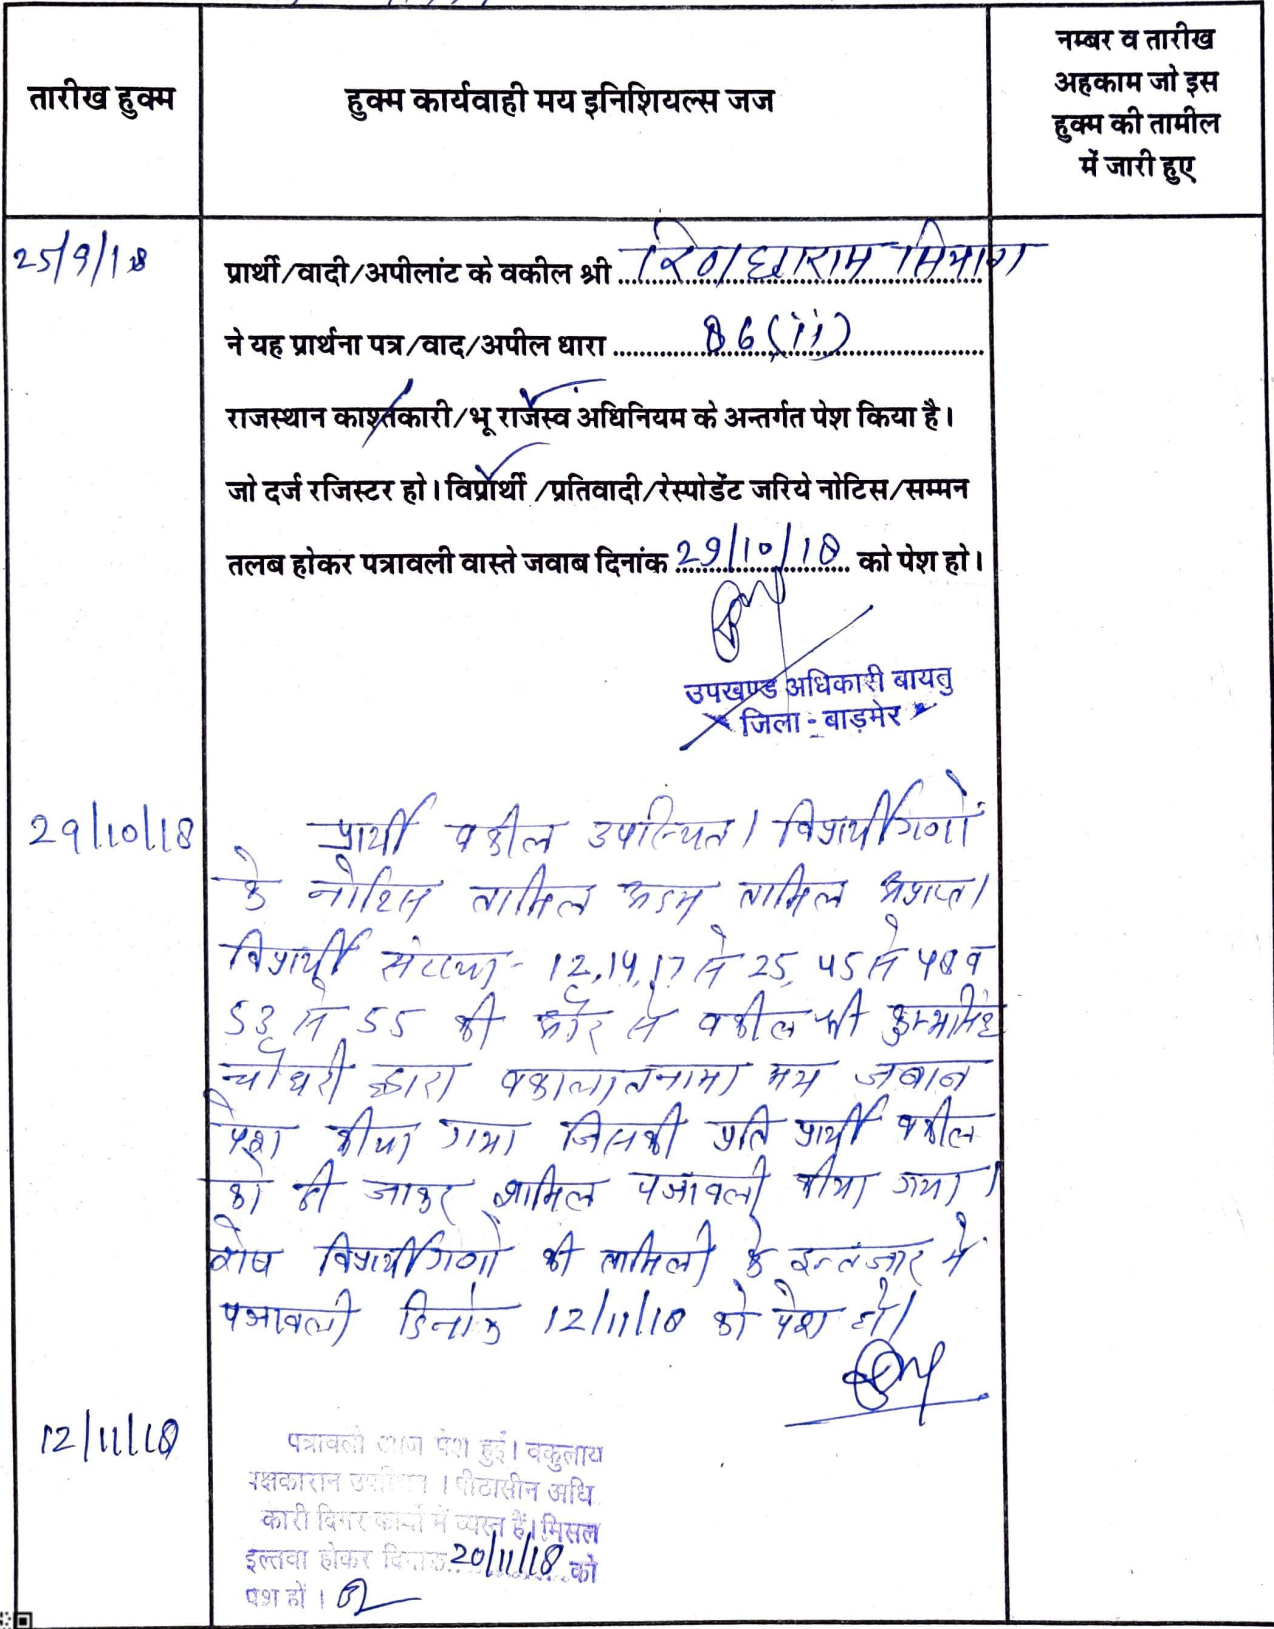 तारीख हुक्म
हुक्म कार्यवाही मय इनिशियल्स जज
नम्बर व तारीख
अहकाम जो इस
हुक्म की तामील
में जारी हुए
25/9/18
प्रार्थी/वादी/अपीलांट के वकील श्री ..............
ने यह प्रार्थना पत्र/वाद/अपील धारा ..... 86(ii) .....
राजस्थान काश्तकारी/भू राजस्व अधिनियम के अन्तर्गत पेश किया है।
जो दर्ज रजिस्टर हो। विप्रार्थी /प्रतिवादी/रेस्पोडेंट जरिये नोटिस/सम्मन
तलब होकर पत्रावली वास्ते जवाब दिनांक 29/10/18 को पेश हो।
उपखण्ड अधिकारी बायतु
जिला - बाड़मेर
29/10/18
प्रार्थी वकील उपस्थित। विप्रार्थीगणों
के नोटिस तामिल अदम तामिल अप्राप्त।
विप्रार्थी संख्या - 12,14,17 से 25, 45 से 48 व
53 से 55 की ओर से वकील श्री कुम्भसिंह
चौधरी द्वारा वकालातनामा मय जबाब
पेश कीया गया जिसकी प्रति प्रार्थी वकील
को दी जाकर शामिल पत्रावली कीया गया।
शेष विप्रार्थीगणों की तामिली के इन्तजार में
पत्रावली दिनांक 12/11/18 को पेश हो।
12/11/18
पत्रावली आज पेश हुई। वकुलाय
पक्षकारान उपस्थित । पीठासीन अधि
कारी दिगर कार्यो में व्यस्त हैं। मिसल
इल्तवा होकर दिनांक 20/11/18 को
पेश हों ।